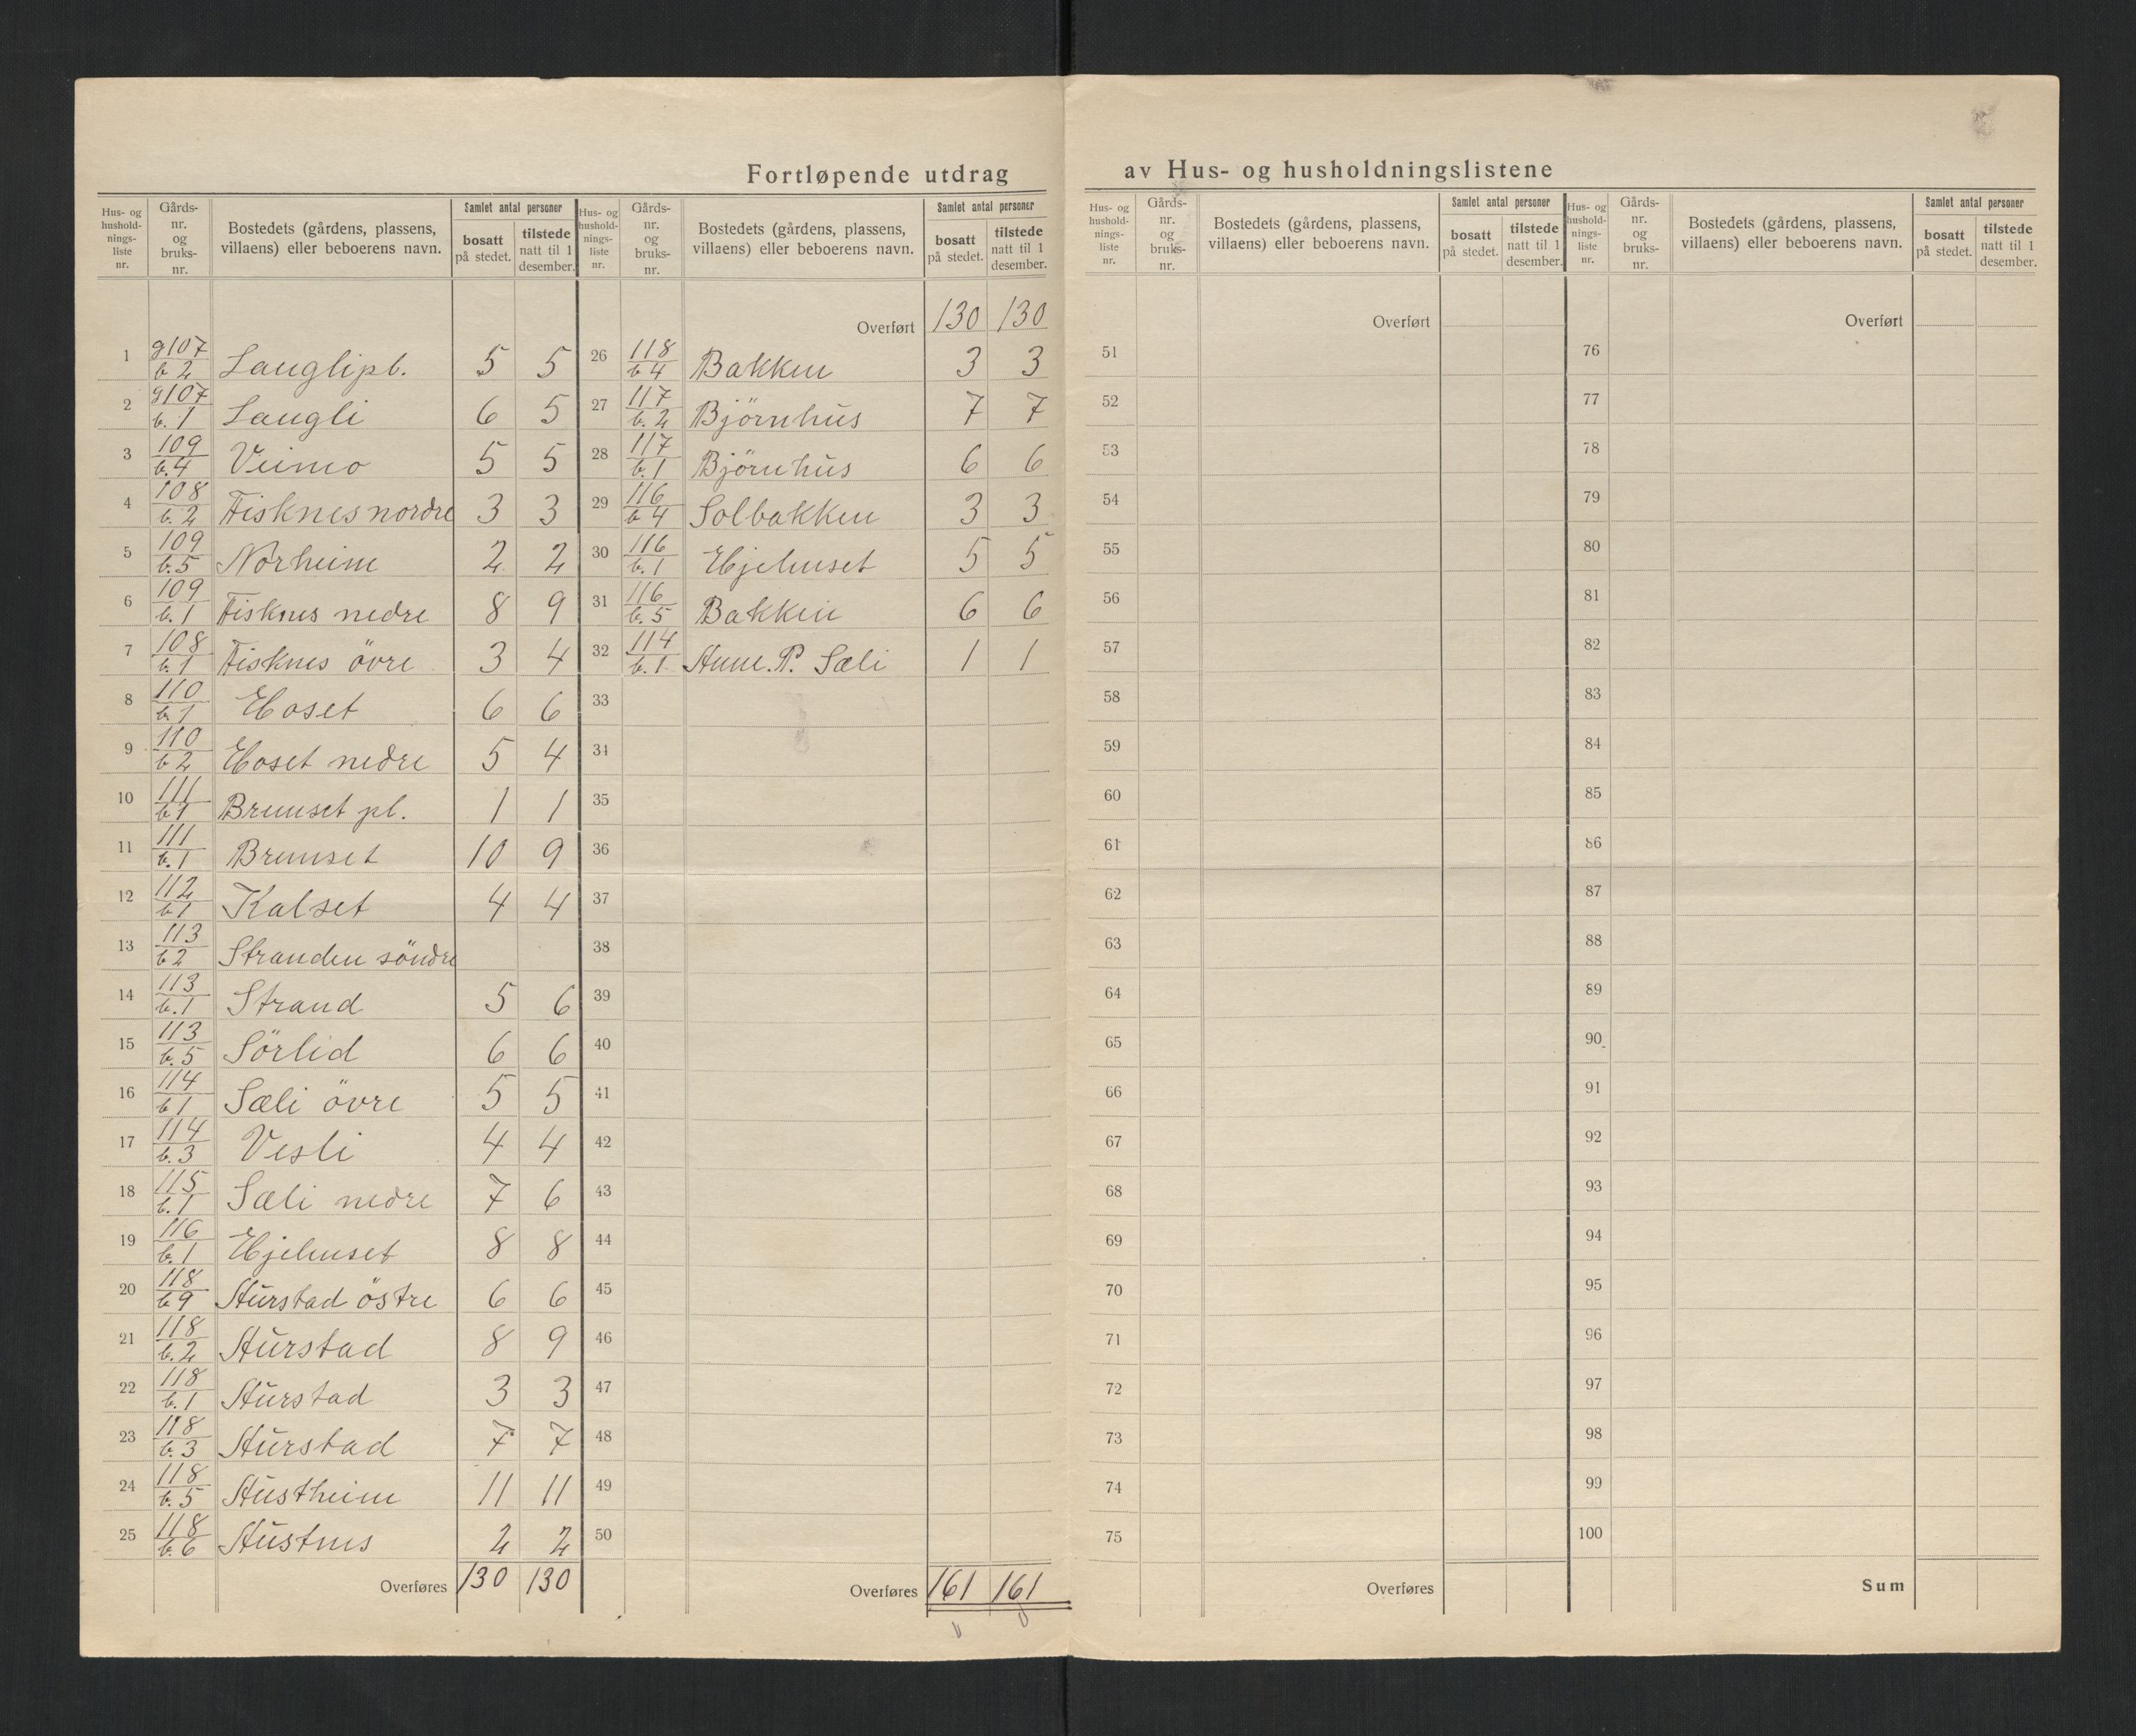 Fortløpende utdrag av Hus- og husholdningslistene
Hus- og hushold-nings-liste nr. Gårds-nr. og bruks-nr. Bostedets (gårdens, plassens, villaens) eller beboerens navn. Samlet antal personer bosatt på stedet. tilstede natt til 1 desember.
1 g107 b 2 Langlipl. 5 5
2 g107 b. 1 Langli 6 5
3 109 b.4 Veimo 5 5
4 108 b. 2 Fisknes nordre 3 3
5 109 b.5 Norheim 2 2
6 109 b.1 Fisknes nedre 8 9
7 108 b.1 Fisknes övre 3 4
8 110 b.1 Hoset 6 6
9 110 b 2 Hoset nedre 5 4
10 111 b 1 Brunset pl. 1 1
11 111 b.1 Brunset 10 9
12 112 b1 Kalset 4 4
13 113 b 2 Stranden söndre
14 113 b.1 Strand 5 6
15 113 b.5 Sörlid 6 6
16 114 b 1 Sæli övre 5 5
17 114 b.3 Vesli 4 4
18 115 b.1 Sæli nedre 7 6
19 116 b.1 Hjelmset 8 8
20 118 b 9 Hurstad östre 6 6
21 118 b.2 Hurstad 8 9
22 118 b.1 Hurstad 3 3
23 118 b.3 Hurstad 7 7
24 118 b.5 Hustheim 11 11
25 118 b.6 Hustnes 2 2
Overføres 130 130
Hus- og hushold-nings-liste nr. Gårds-nr. og bruks-nr. Bostedets (gårdens, plassens, villaens) eller beboerens navn. Samlet antal personer bosatt på stedet. tilstede natt til 1 desember.
Overført 130 130
26 118 b 4 Bakken 3 3
27 117 b. 2 Björnhus 7 7
28 117 b.1 Björnhus 6 6
29 116 b 4 Solbakken 3 3
30 116 b.1 Hjelmset 5 5
31 116 b.5 Bakken 6 6
32 114 b.1 Anne. P. Sæli 1 1
33
34
35
36
37
38
39
40
41
42
43
44
45
46
47
48
49
50
Overføres 161 161
Hus- og hushold-nings-liste nr. Gårds-nr. og bruks-nr. Bostedets (gårdens, plassens, villaens) eller beboerens navn. Samlet antal personer bosatt på stedet. tilstede natt til 1 desember.
Overført
51
52
53
54
55
56
57
58
59
60
61
62
63
64
65
66
67
68
69
70
71
72
73
74
75
Overføres
Hus- og hushold-nings-liste nr. Gårds-nr. og bruks-nr. Bostedets (gårdens, plassens, villaens) eller beboerens navn. Samlet antal personer bosatt på stedet. tilstede natt til 1 desember.
Overført
76
77
78
79
80
81
82
83
84
85
86
87
88
89
90
91
92
93
94
95
96
97
98
99
100
Sum